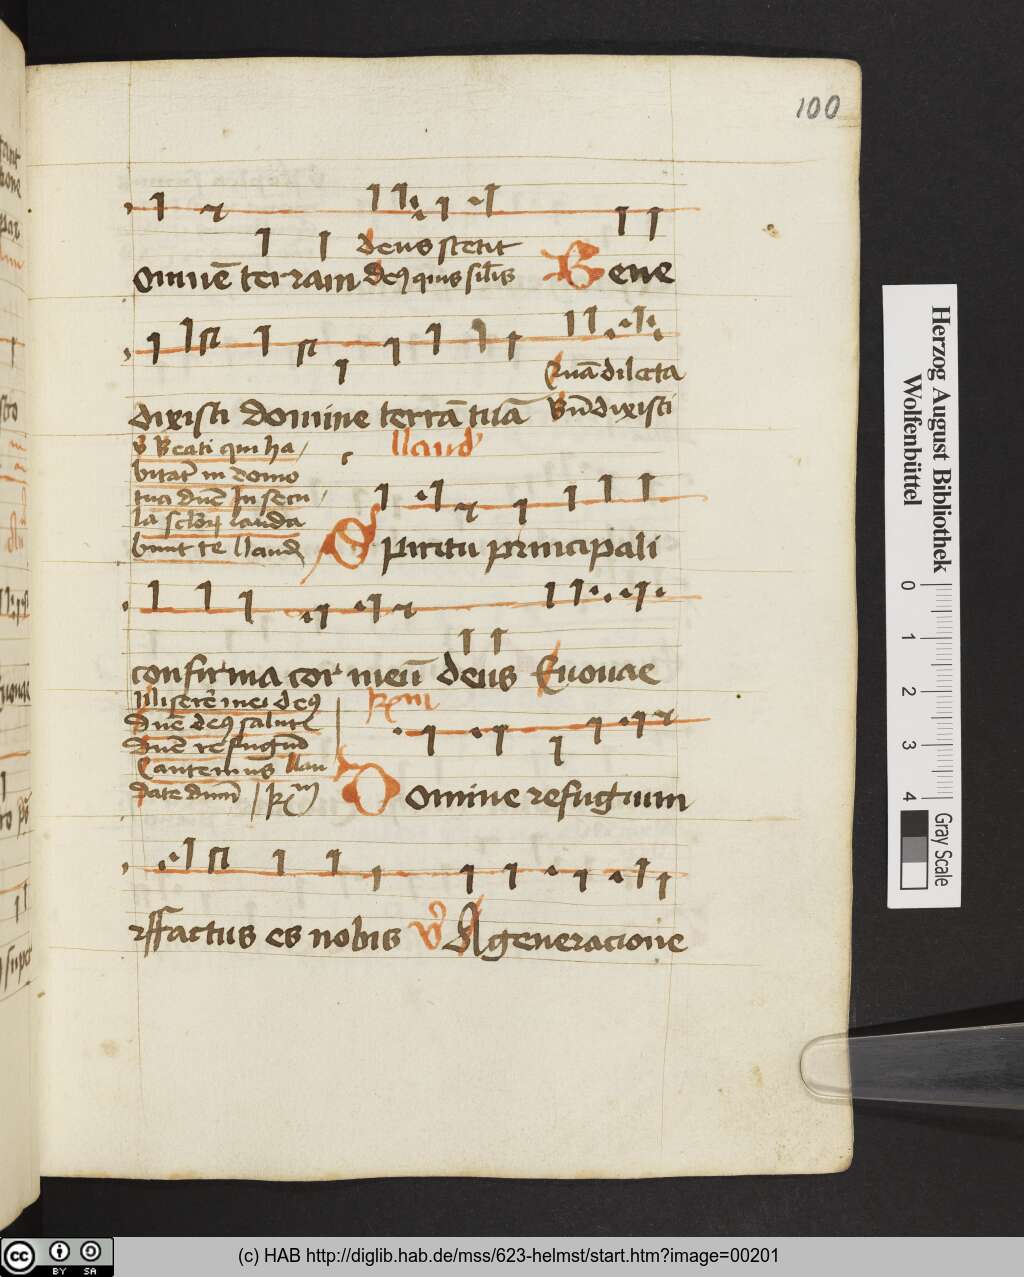 100
deus stetit
omnē terram deꝰ quis sil̄is Bene
Quā dilecta
dixisti domine terrā tuā Bn̄dixisti
V Beati qui ha
llaud'
bitāt in domo
tua dn̄e In secu
la sclor̄ lauda
bunt te llaud
Spiritu principali
confirma cor meū deus Euouae
Miserē mei deꝰ
dn̄e deꝰ salutꝭ
Dn̄e refugiū
Cantemus llau
date dnm̄
Domine refugium
factus es nobis V A generacione
Herzog August Bibliothek
Wolfenbüttel
0 1 2 3 4
Gray Scale
cc BY SA
(c) HAB http://diglib.hab.de/mss/623-helmst/start.htm?image=00201